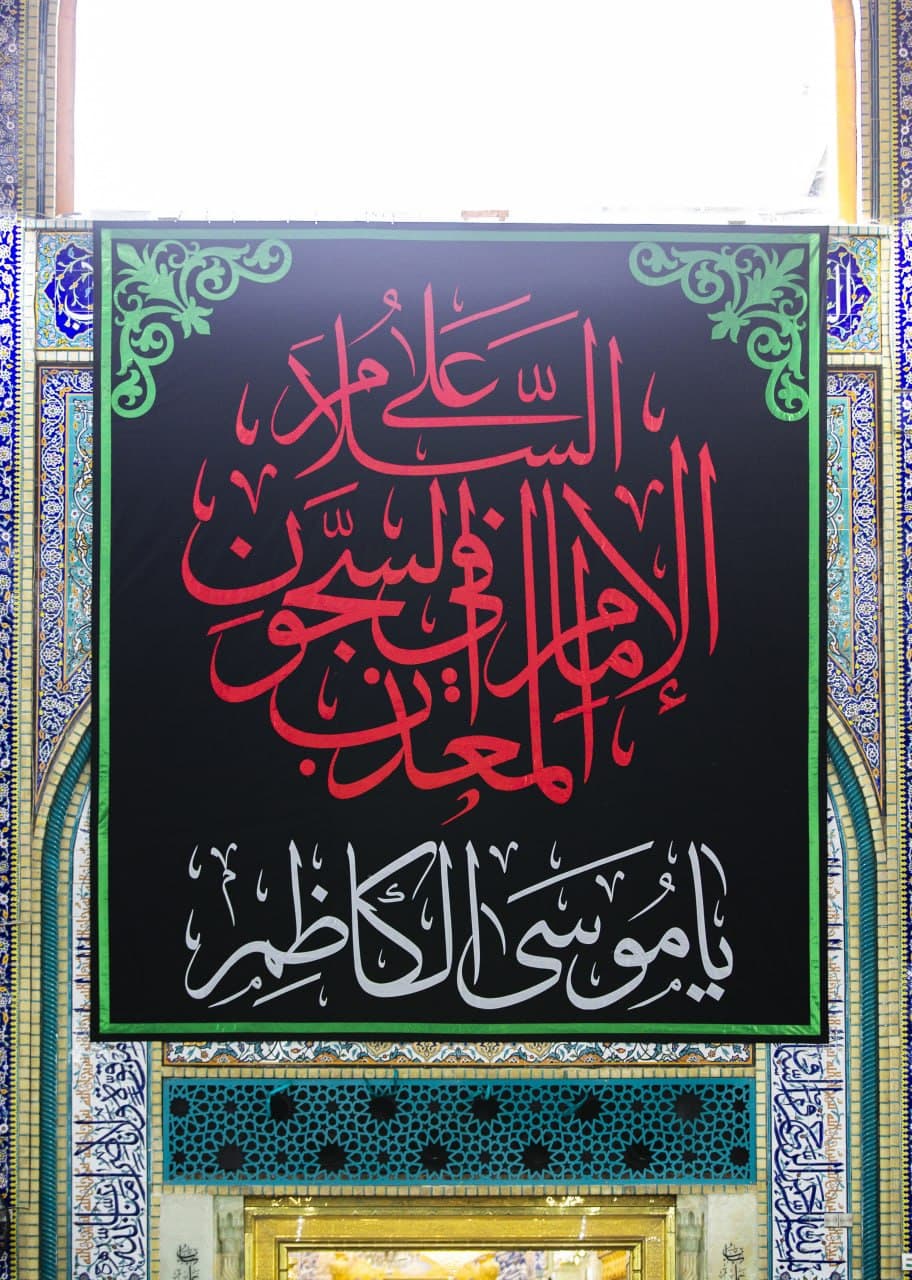 السَّلَامُ عَلَى
الإِمَامِ المُعَذَّبِ فِي السُّجُونِ
يَا مُوسَى الكَاظِمِ